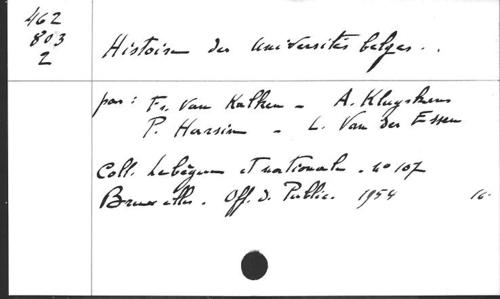 462
803
2
Histoire des Universités belges..
par: Fr. Van Kalken - A. Kluyskens
P. Harsin - L. Van der Essen
Coll. Lebègue et nationale. n° 107
Bruxelles. Off. d. Public. 1954 16-